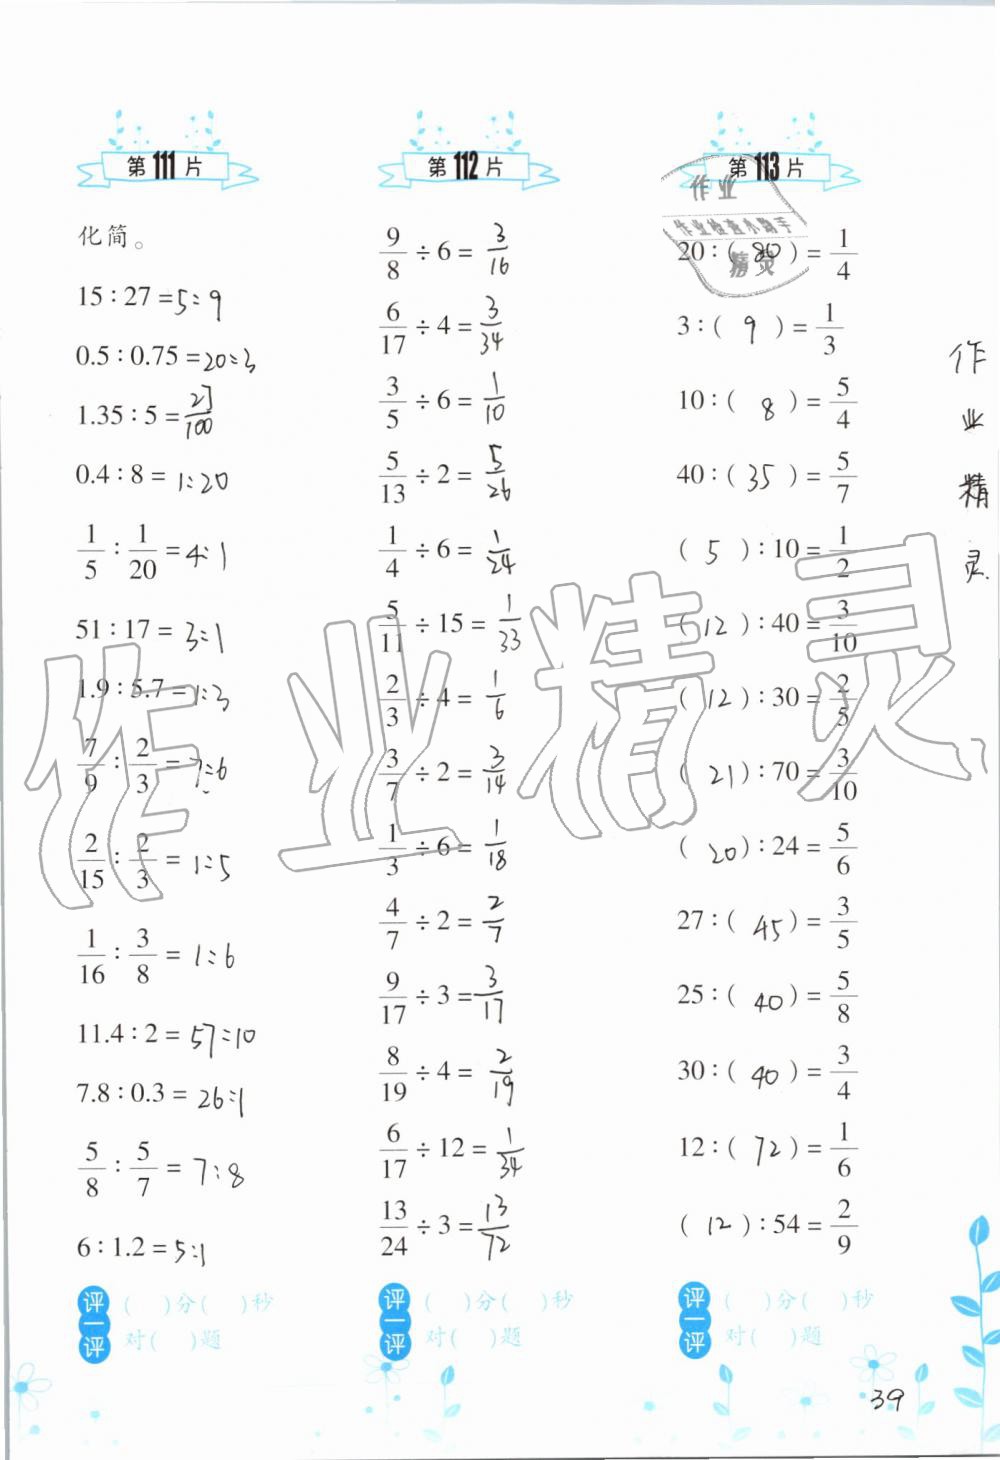 第111片
化简。
15∶27=5∶9
0.5∶0.75=20∶3
1.35∶5=27/100
0.4∶8=1∶20
1/5∶1/20=4∶1
51∶17=3∶1
1.9∶5.7=1∶3
7/9∶2/3=7∶6
2/15∶2/3=1∶5
1/16∶3/8=1∶6
11.4∶2=57∶10
7.8∶0.3=26∶1
5/8∶5/7=7∶8
6∶1.2=5∶1
评一评
( )分( )秒
对( )题
第112片
9/8÷6=3/16
6/17÷4=3/34
3/5÷6=1/10
5/13÷2=5/26
1/4÷6=1/24
5/11÷15=1/33
2/3÷4=1/6
3/7÷2=3/14
1/3÷6=1/18
4/7÷2=2/7
9/17÷3=3/17
8/19÷4=2/19
6/17÷12=1/34
13/24÷3=13/72
评一评
( )分( )秒
对( )题
第113片
20∶(80)=1/4
3∶(9)=1/3
10∶(8)=5/4
40∶(35)=5/7
(5)∶10=1/2
(12)∶40=3/10
(12)∶30=2/5
(21)∶70=3/10
(20)∶24=5/6
27∶(45)=3/5
25∶(40)=5/8
30∶(40)=3/4
12∶(72)=1/6
(12)∶54=2/9
评一评
( )分( )秒
对( )题
作业
作业检查小助手
精灵
作业精灵
作
业
精
灵
39